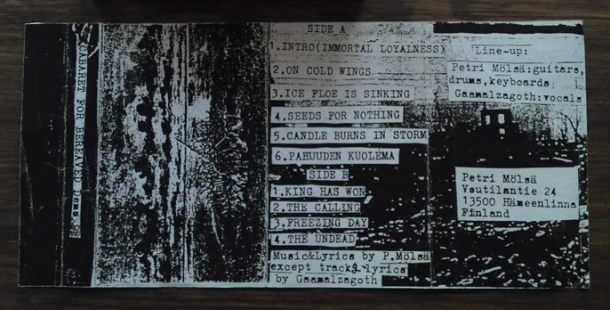 CABARET FOR BEREAVED Demo
SIDE A
1.INTRO(IMMORTAL LOYALNESS)
2.ON COLD WINGS
3.ICE FLOE IS SINKING
4.SEEDS FOR NOTHING
5.CANDLE BURNS IN STORM
6.PAHUUDEN KUOLEMA
SIDE B
1.KING HAS WON
2.THE CALLING
3.FREEZING DAY
4.THE UNDEAD
Music&Lyrics by P.Mölsä
except track lyrics
by Gaamalzagoth
Line-up:
Petri Mölsä:guitars,
drums,keyboards
Gaamalzagoth:vocals
Petri Mölsä
Voutilantie 24
13500 Hämeenlinna
Finland